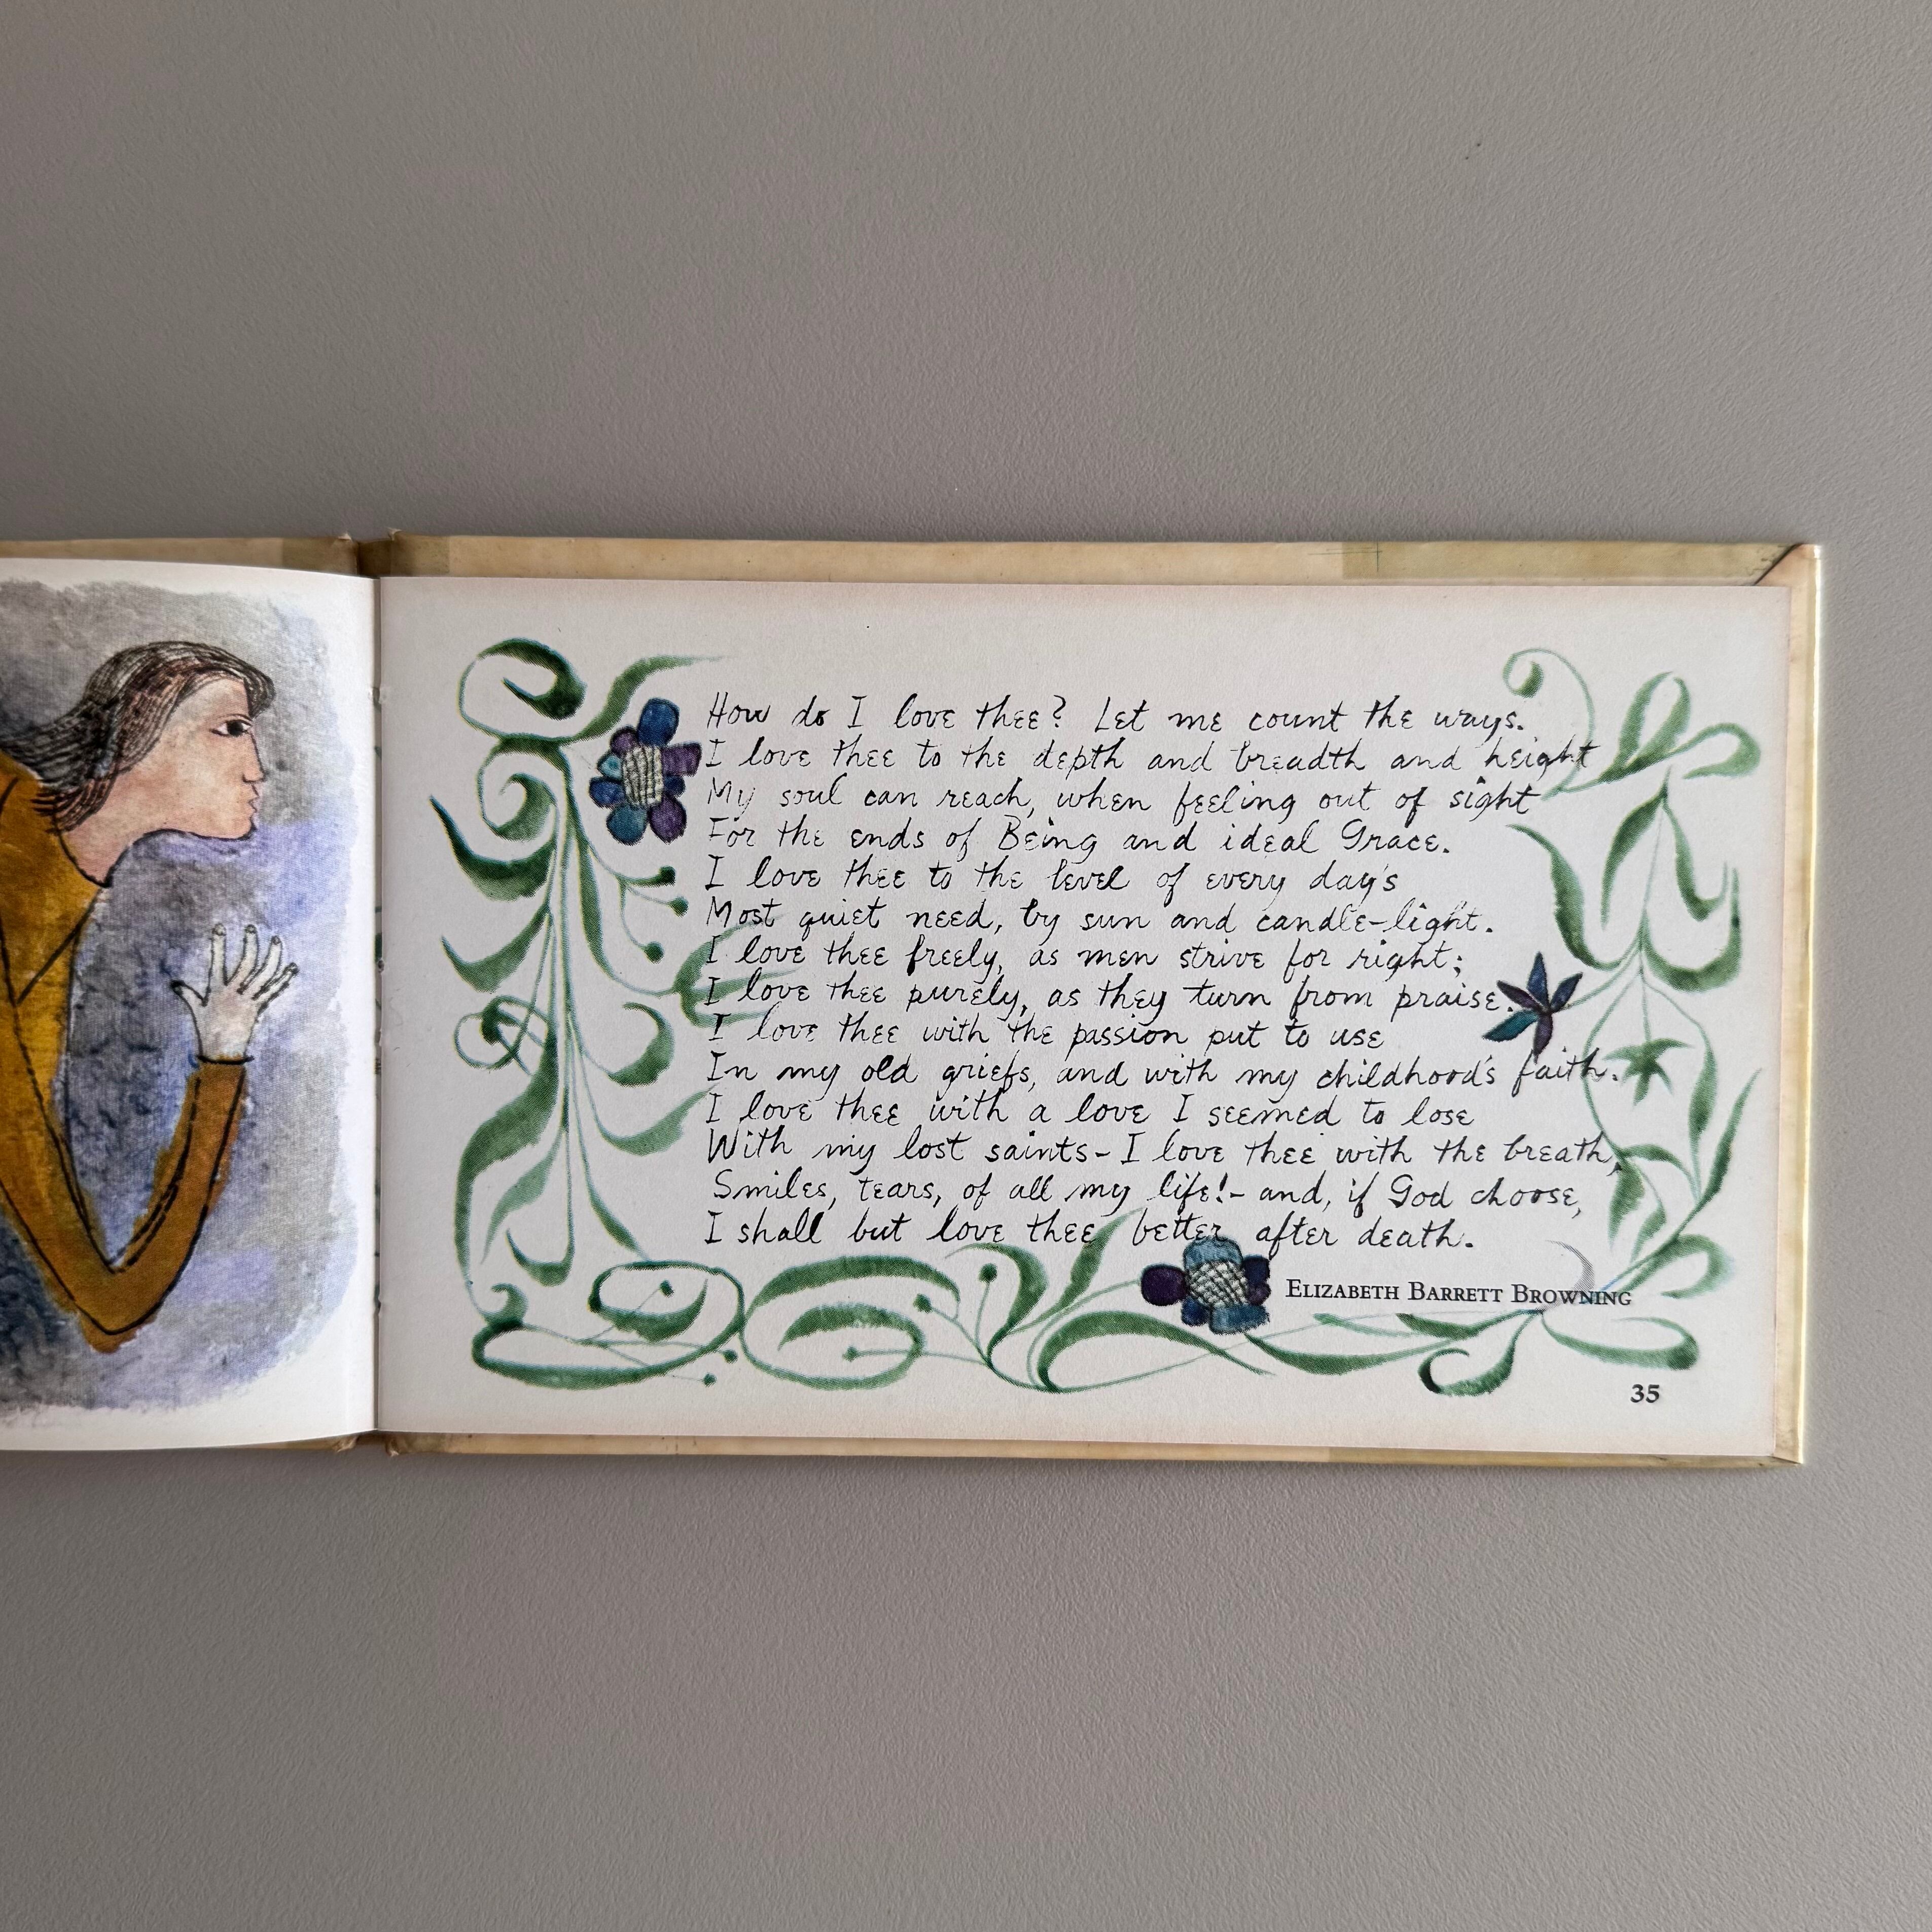 How do I love thee? Let me count the ways.
I love thee to the depth and breadth and height
My soul can reach, when feeling out of sight
For the ends of Being and ideal Grace.
I love thee to the level of every day's
Most quiet need, by sun and candle-light.
I love thee freely, as men strive for right;
I love thee purely, as they turn from praise.
I love thee with the passion put to use
In my old griefs, and with my childhood's faith.
I love thee with a love I seemed to lose
With my lost saints - I love thee with the breath,
Smiles, tears, of all my life! - and, if God choose,
I shall but love thee better after death.
ELIZABETH BARRETT BROWNING
35